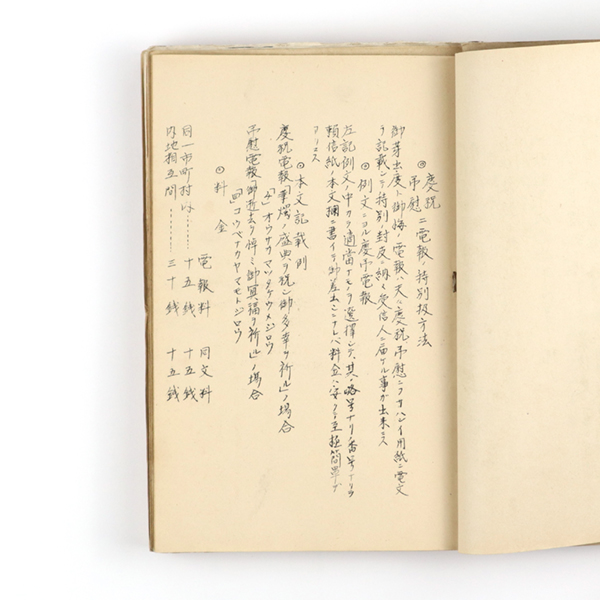 ◎慶祝
弔慰ニ電報ノ特別扱方法
御芽出度ト御悔ノ電報ハ夫々慶祝弔慰ニフサハシイ用紙ニ電文
ヲ記載シテ特別ノ封皮ニ納メ受信人ニ届ケル事が出来マス
◎例文ニヨル慶弔電報
左記例文ノ中カラ適當ナモノヲ選擇シテ、其ノ略号ナリノ番号ナリヲ
頼信紙ノ本文欄ニ書イテ御差出シニナレバ料金ハ安クテ至極簡単デ
アリマス
◎本文記載例
慶祝電報「華燭ノ盛典ヲ祝シ御多幸ヲ祈ル」ノ場合
「チ」オウサカマツタケウメジロウ
弔慰電報「御逝去ヲ悼ミ御冥福ヲ祈ル」ノ場合
「コウベナカヤマモトジロウ
◎料金
電報料 同文料
同一市町村内……十五銭 十五銭
内地相互間………三十銭 十五銭